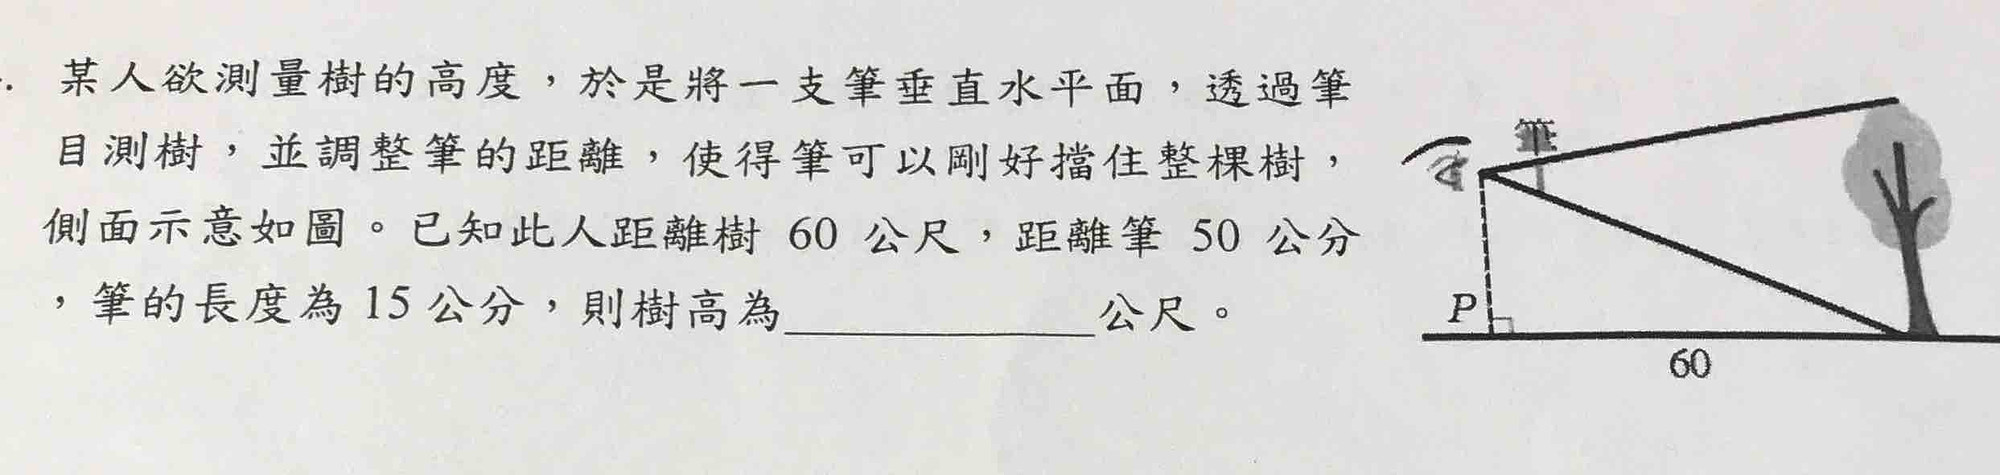 . 某人欲測量樹的高度，於是將一支筆垂直水平面，透過筆
目測樹，並調整筆的距離，使得筆可以剛好擋住整棵樹，
側面示意如圖。已知此人距離樹 60 公尺，距離筆 50 公分
，筆的長度為 15 公分，則樹高為__________公尺。
筆
P
60